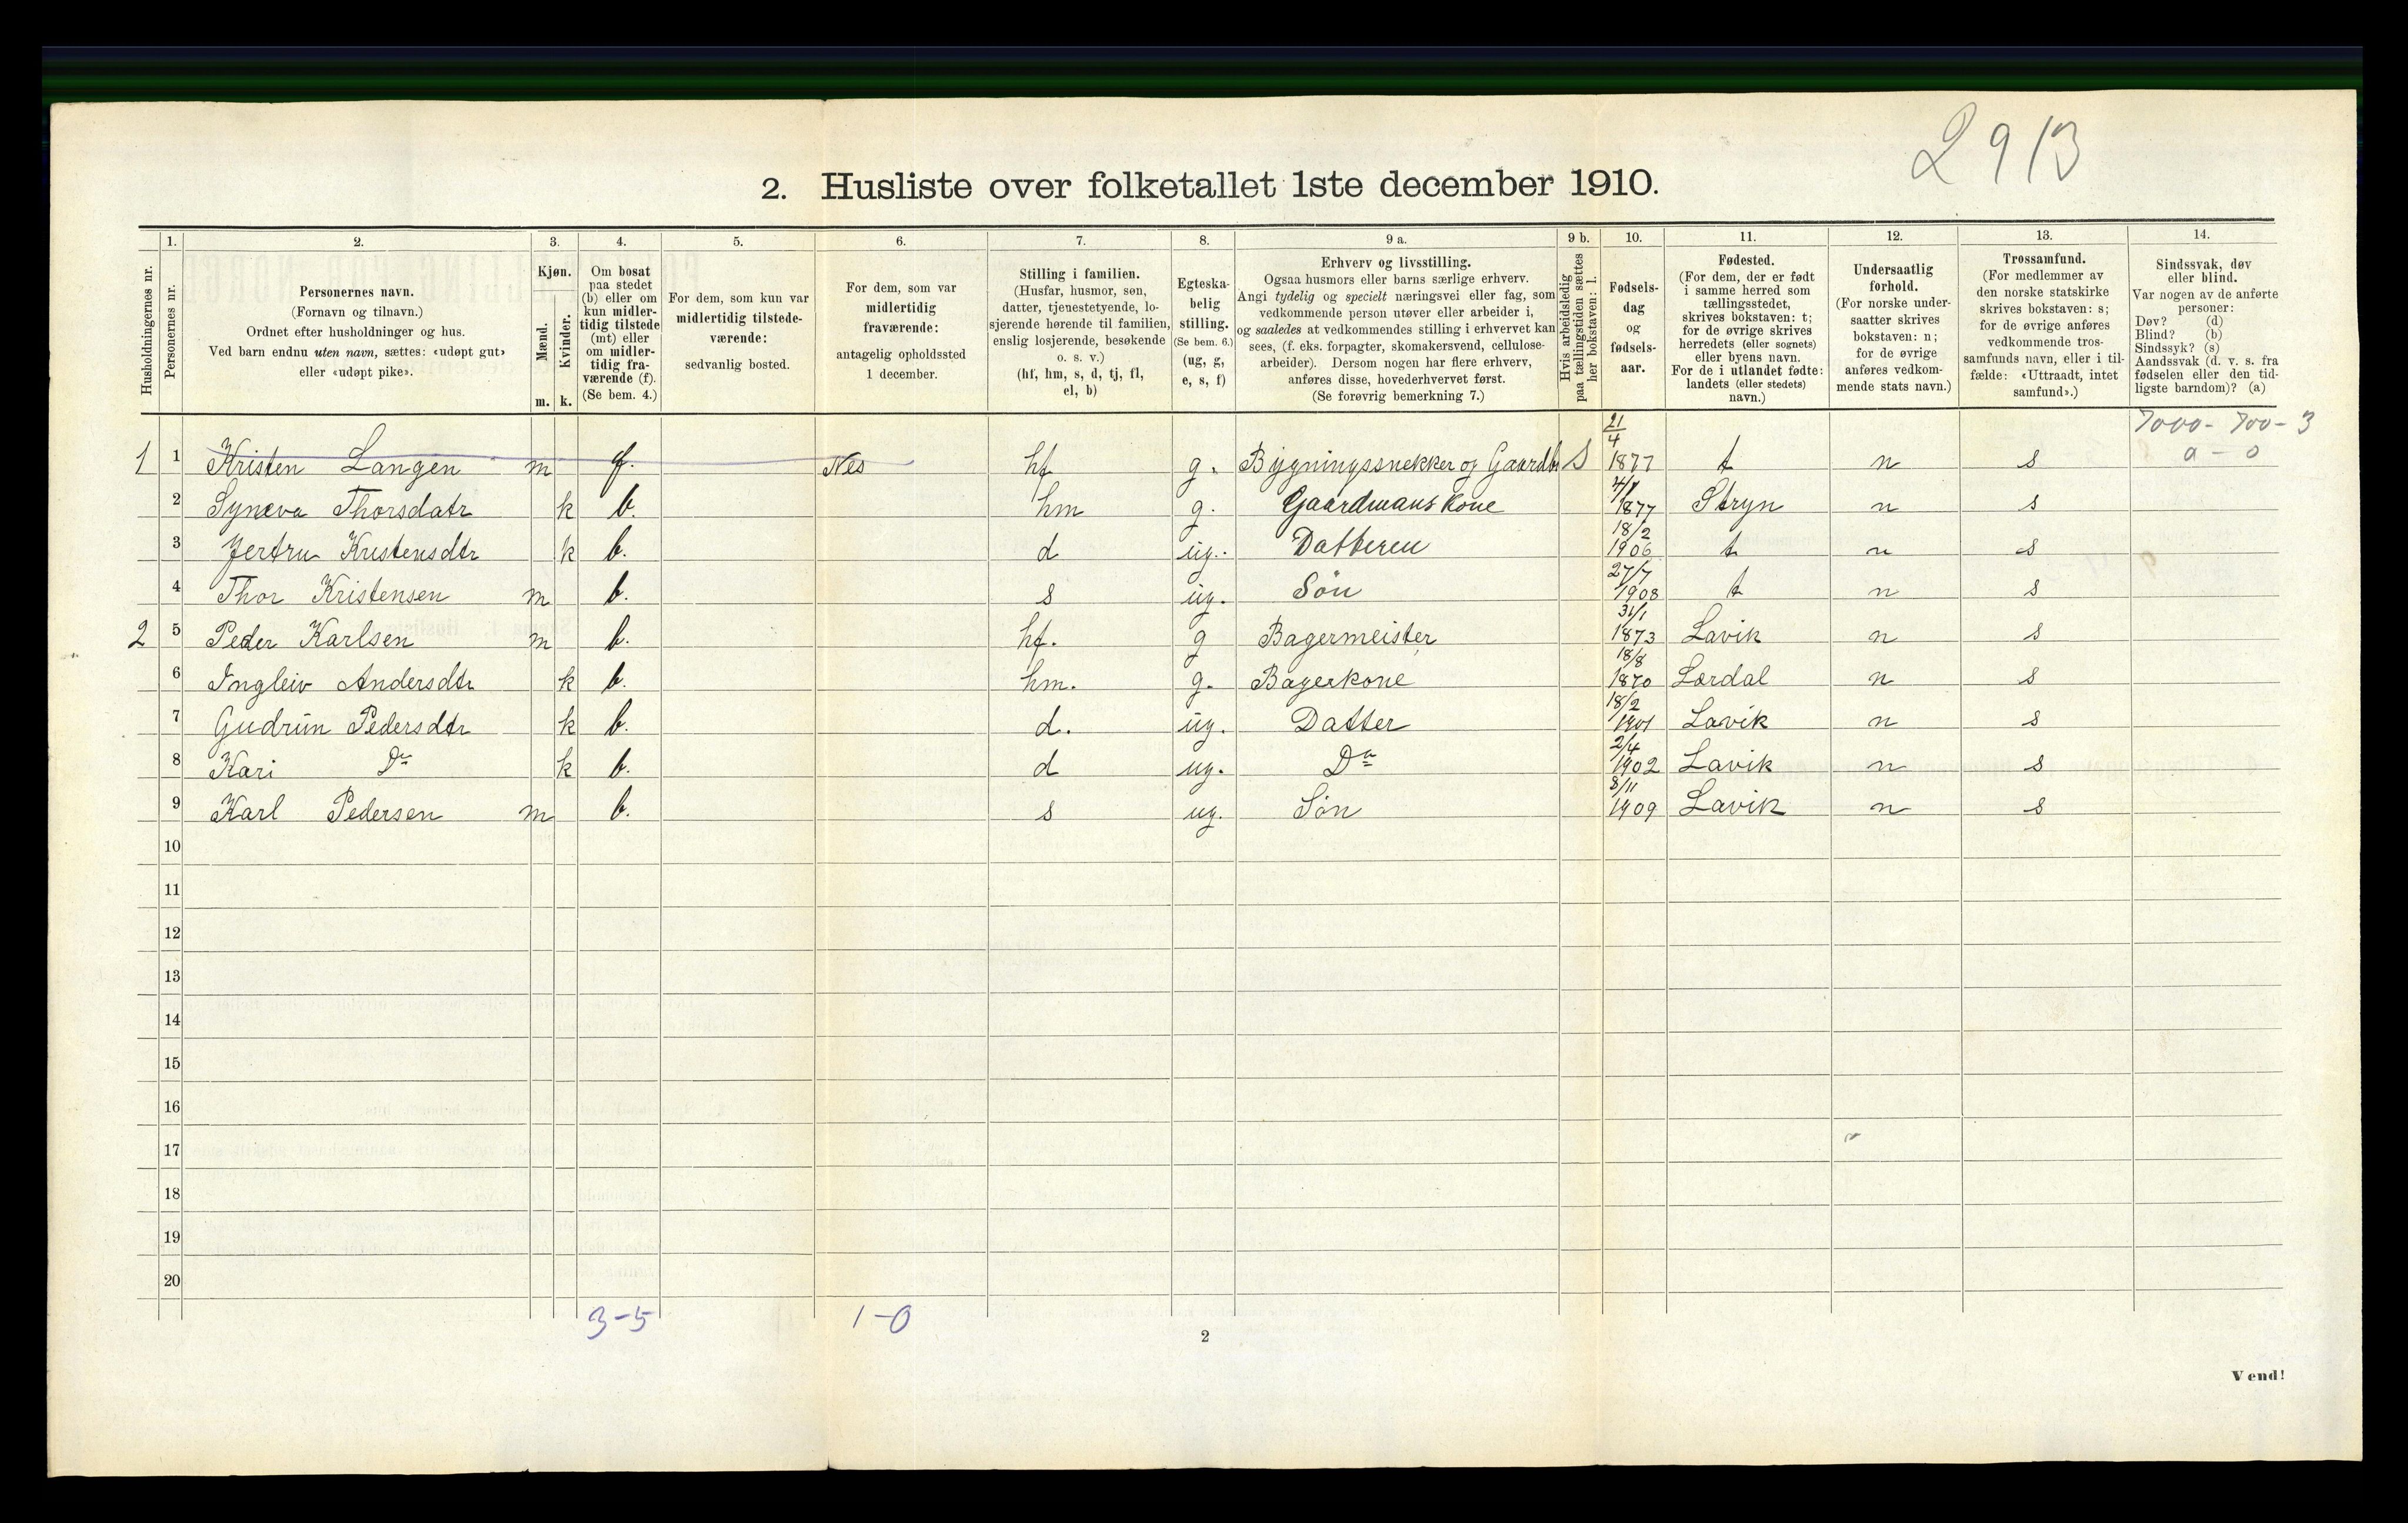 2913
2. Husliste over folketallet 1ste december 1910.
1. 2. 3. 4. 5. 6. 7. 8. 9 a. 9 b. 10. 11. 12. 13. 14.
Husholdningernes nr.
Personernes nr.
Personernes navn.
(Fornavn og tilnavn.)
Ordnet efter husholdninger og hus.
Ved barn endnu uten navn, sættes: «udøpt gut»
eller «udøpt pike».
Kjøn.
Mænd.
Kvinder.
m. k.
Om bosat
paa stedet
(b) eller om
kun midler-
tidig tilstede
(mt) eller
om midler-
tidig fra-
værende (f).
(Se bem. 4.)
For dem, som kun var
midlertidig tilstede-
værende:
sedvanlig bosted.
For dem, som var
midlertidig
fraværende:
antagelig opholdssted
1 december.
Stilling i familien.
(Husfar, husmor, søn,
datter, tjenestetyende, lo-
sjerende hørende til familien,
enslig losjerende, besøkende
o. s. v.)
(hf, hm, s, d, tj, fl,
el, b)
Egteska-
belig
stilling.
(Se bem. 6.)
(ug, g,
e, s, f)
Erhverv og livsstilling.
Ogsaa husmors eller barns særlige erhverv.
Angi tydelig og specielt næringsvei eller fag, som
vedkommende person utøver eller arbeider i,
og saaledes at vedkommendes stilling i erhvervet kan
sees, (f. eks. forpagter, skomakersvend, cellulose-
arbeider). Dersom nogen har flere erhverv,
anføres disse, hovederhvervet først.
(Se forøvrig bemerkning 7.)
Hvis arbeidsledig
paa tællingstiden sættes
her bokstaven: l.
Fødsels-
dag
og
fødsels-
aar.
Fødested.
(For dem, der er født
i samme herred som
tællingsstedet,
skrives bokstaven: t;
for de øvrige skrives
herredets (eller sognets)
eller byens navn.
For de i utlandet fødte:
landets (eller stedets)
navn.)
Undersaatlig
forhold.
(For norske under-
saatter skrives
bokstaven: n;
for de øvrige
anføres vedkom-
mende stats navn.)
Trossamfund.
(For medlemmer av
den norske statskirke
skrives bokstaven: s;
for de øvrige anføres
vedkommende tros-
samfunds navn, eller i til-
fælde: «Uttraadt, intet
samfund».)
Sindssvak, døv
eller blind.
Var nogen av de anførte
personer:
Døv? (d)
Blind? (b)
Sindssyk? (s)
Aandssvak (d. v. s. fra
fødselen eller den tid-
ligste barndom)? (a)
7000- 700- 3
a - 0
1 1 Kristen Langen m f. Nes hf g. Bygningssnekker og Gaardbr S 21/4 1877 t n s
2 Syneva Thorsdatr k b. hm g. Gaardmanskone 1877 Stryn n s
3 Jertru Kristensdtr k b. d ug. Datteren 18/2 1906 t n s
4 Thor Kristensen m b. s ug. Søn 27/7 1908 t n s
2 5 Peder Karlsen m b. hf. g Bagermeister 31/1 1873 Lavik n s
6 Ingleiv Andersdtr k b. hm. g. Bagerkone 18/8 1870 Lærdal n s
7 Gudrun Pedersdtr k b. d. ug. Datter 18/2 1901 Lavik n s
8 Kari Do k b. d ug. Do 2/4 1902 Lavik n s
9 Karl Pedersen m b. s ug. Søn 8/11 1909 Lavik n s
10
11
12
13
14
15
16
17
18
19
20
3-5 1-0
2
Vend!